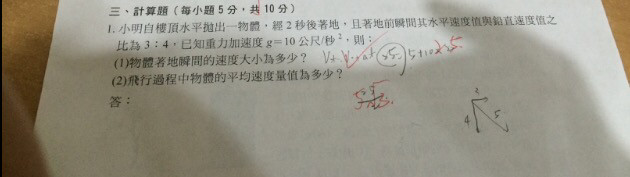 三、計算題(每小題 5 分，共 10 分)
1. 小明自樓頂水平拋出一物體，經 2 秒後著地，且著地前瞬間其水平速度值與鉛直速度值之
比為 3：4，已知重力加速度 g=10 公尺/秒²，則：
(1)物體著地瞬間的速度大小為多少？
(2)飛行過程中物體的平均速度量值為多少？
答：
4 5